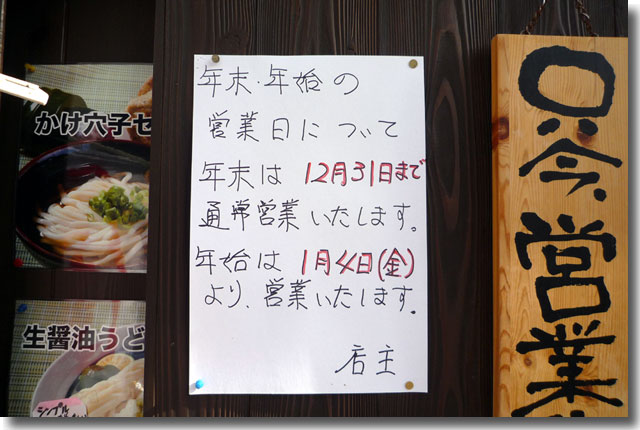 年末・年始の
営業日について
年末は12月31日まで
通常営業いたします。
年始は1月4日(金)
より、営業いたします。
店主
かけ穴子セ
生醤油うど
シンプル
只今、営業